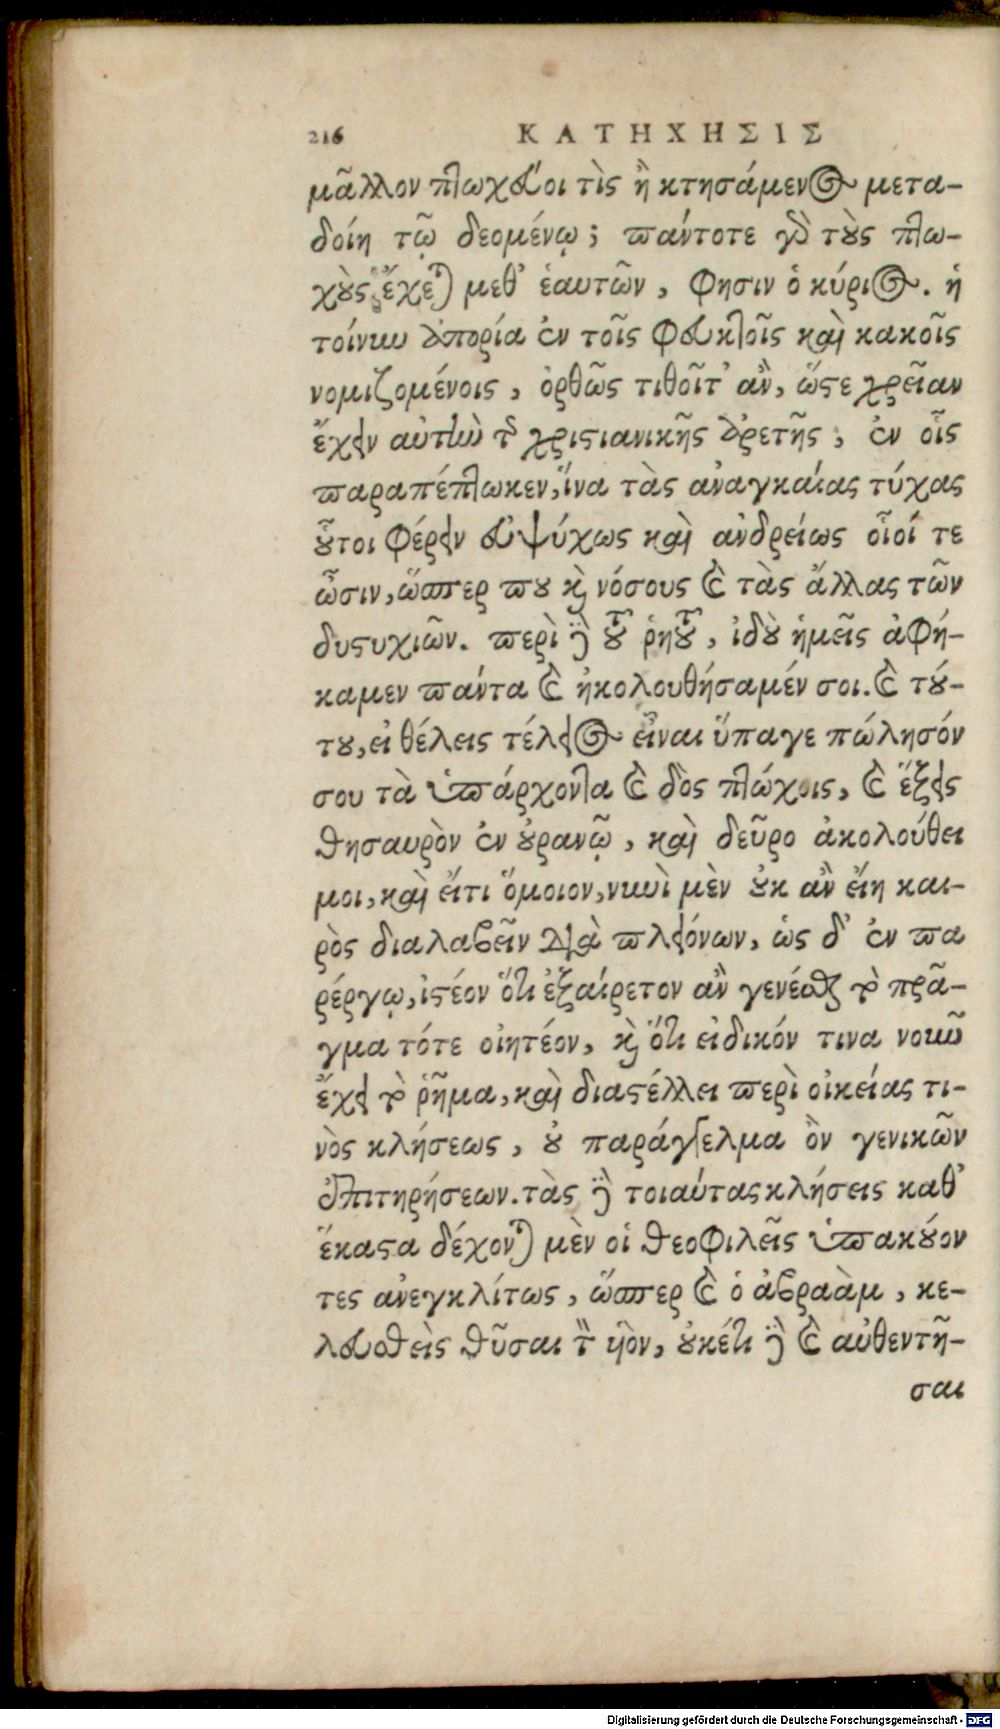 216 ΚΑΤΗΧΗΣΙΣ
μᾶλλον πτωχεύοι τὶς ἢ κτησάμενος μετα-
δοίη τῷ δεομένῳ; πάντοτε γὸ τοὺς πτω-
χοὺς ἔχετε μεθ᾽ ἑαυτῶν, φησιν ὁ κύριος. ἡ
τοίνυν ἀπορία ἐν τοῖς φευκτοῖς καὶ κακοῖς
νομιζομένοις, ὀρθῶς τιθοῖτ᾽ ἂν, ὥστε χρεῖαν
ἔχειν αὐτὴν τῆς χριστιανικῆς ἀρετῆς, ἐν οἷς
παραπέπτωκεν, ἵνα τὰς ἀναγκαίας τύχας
οὗτοι φέρειν εὐψύχως καὶ ἀνδρείως οἷοί τε
ὦσιν, ὥσπερ που καὶ νόσους καὶ τὰς ἄλλας τῶν
δυστυχιῶν. περὶ δὲ τοῦ ῥητοῦ, ἰδοὺ ἡμεῖς ἀφή-
καμεν πάντα καὶ ἠκολουθήσαμέν σοι. καὶ τού-
του, εἰ θέλεις τέλειος εἶναι ὕπαγε πώλησόν
σου τὰ ὑπάρχοντα καὶ δὸς πτώχοις, καὶ ἕξεις
θησαυρὸν ἐν οὐρανῷ, καὶ δεῦρο ἀκολούθει
μοι, καὶ εἴτι ὅμοιον, νυνὶ μὲν οὐκ ἂν εἴη και-
ρὸς διαλαβεῖν διὰ πλειόνων, ὡς δ᾽ ἐν πα
ρέργῳ, ἰστέον ὅτι ἐξαίρετον ἂν γενέσθαι τὸ πρᾶ-
γμα τότε οἰητέον, καὶ ὅτι εἰδικόν τινα νοῦν
ἔχει τὸ ῥῆμα, καὶ διαστέλλει περὶ οἰκείας τι-
νὸς κλήσεως, οὐ παράγγελμα ὂν γενικῶν
ἐπιτηρήσεων. τὰς δὲ τοιαύτας κλήσεις καθ᾽
ἕκαστα δέχονται μὲν οἱ θεοφιλεῖς ὑπακούον
τες ἀνεγκλίτως, ὥσπερ καὶ ὁ ἀβραὰμ, κε-
λευσθεὶς θῦσαι τὸν ὑὸν, οὐκέτι δὲ καὶ αὐθεντῆ-
σαι
Digitalisierung gefördert durch die Deutsche Forschungsgemeinschaft - DFG